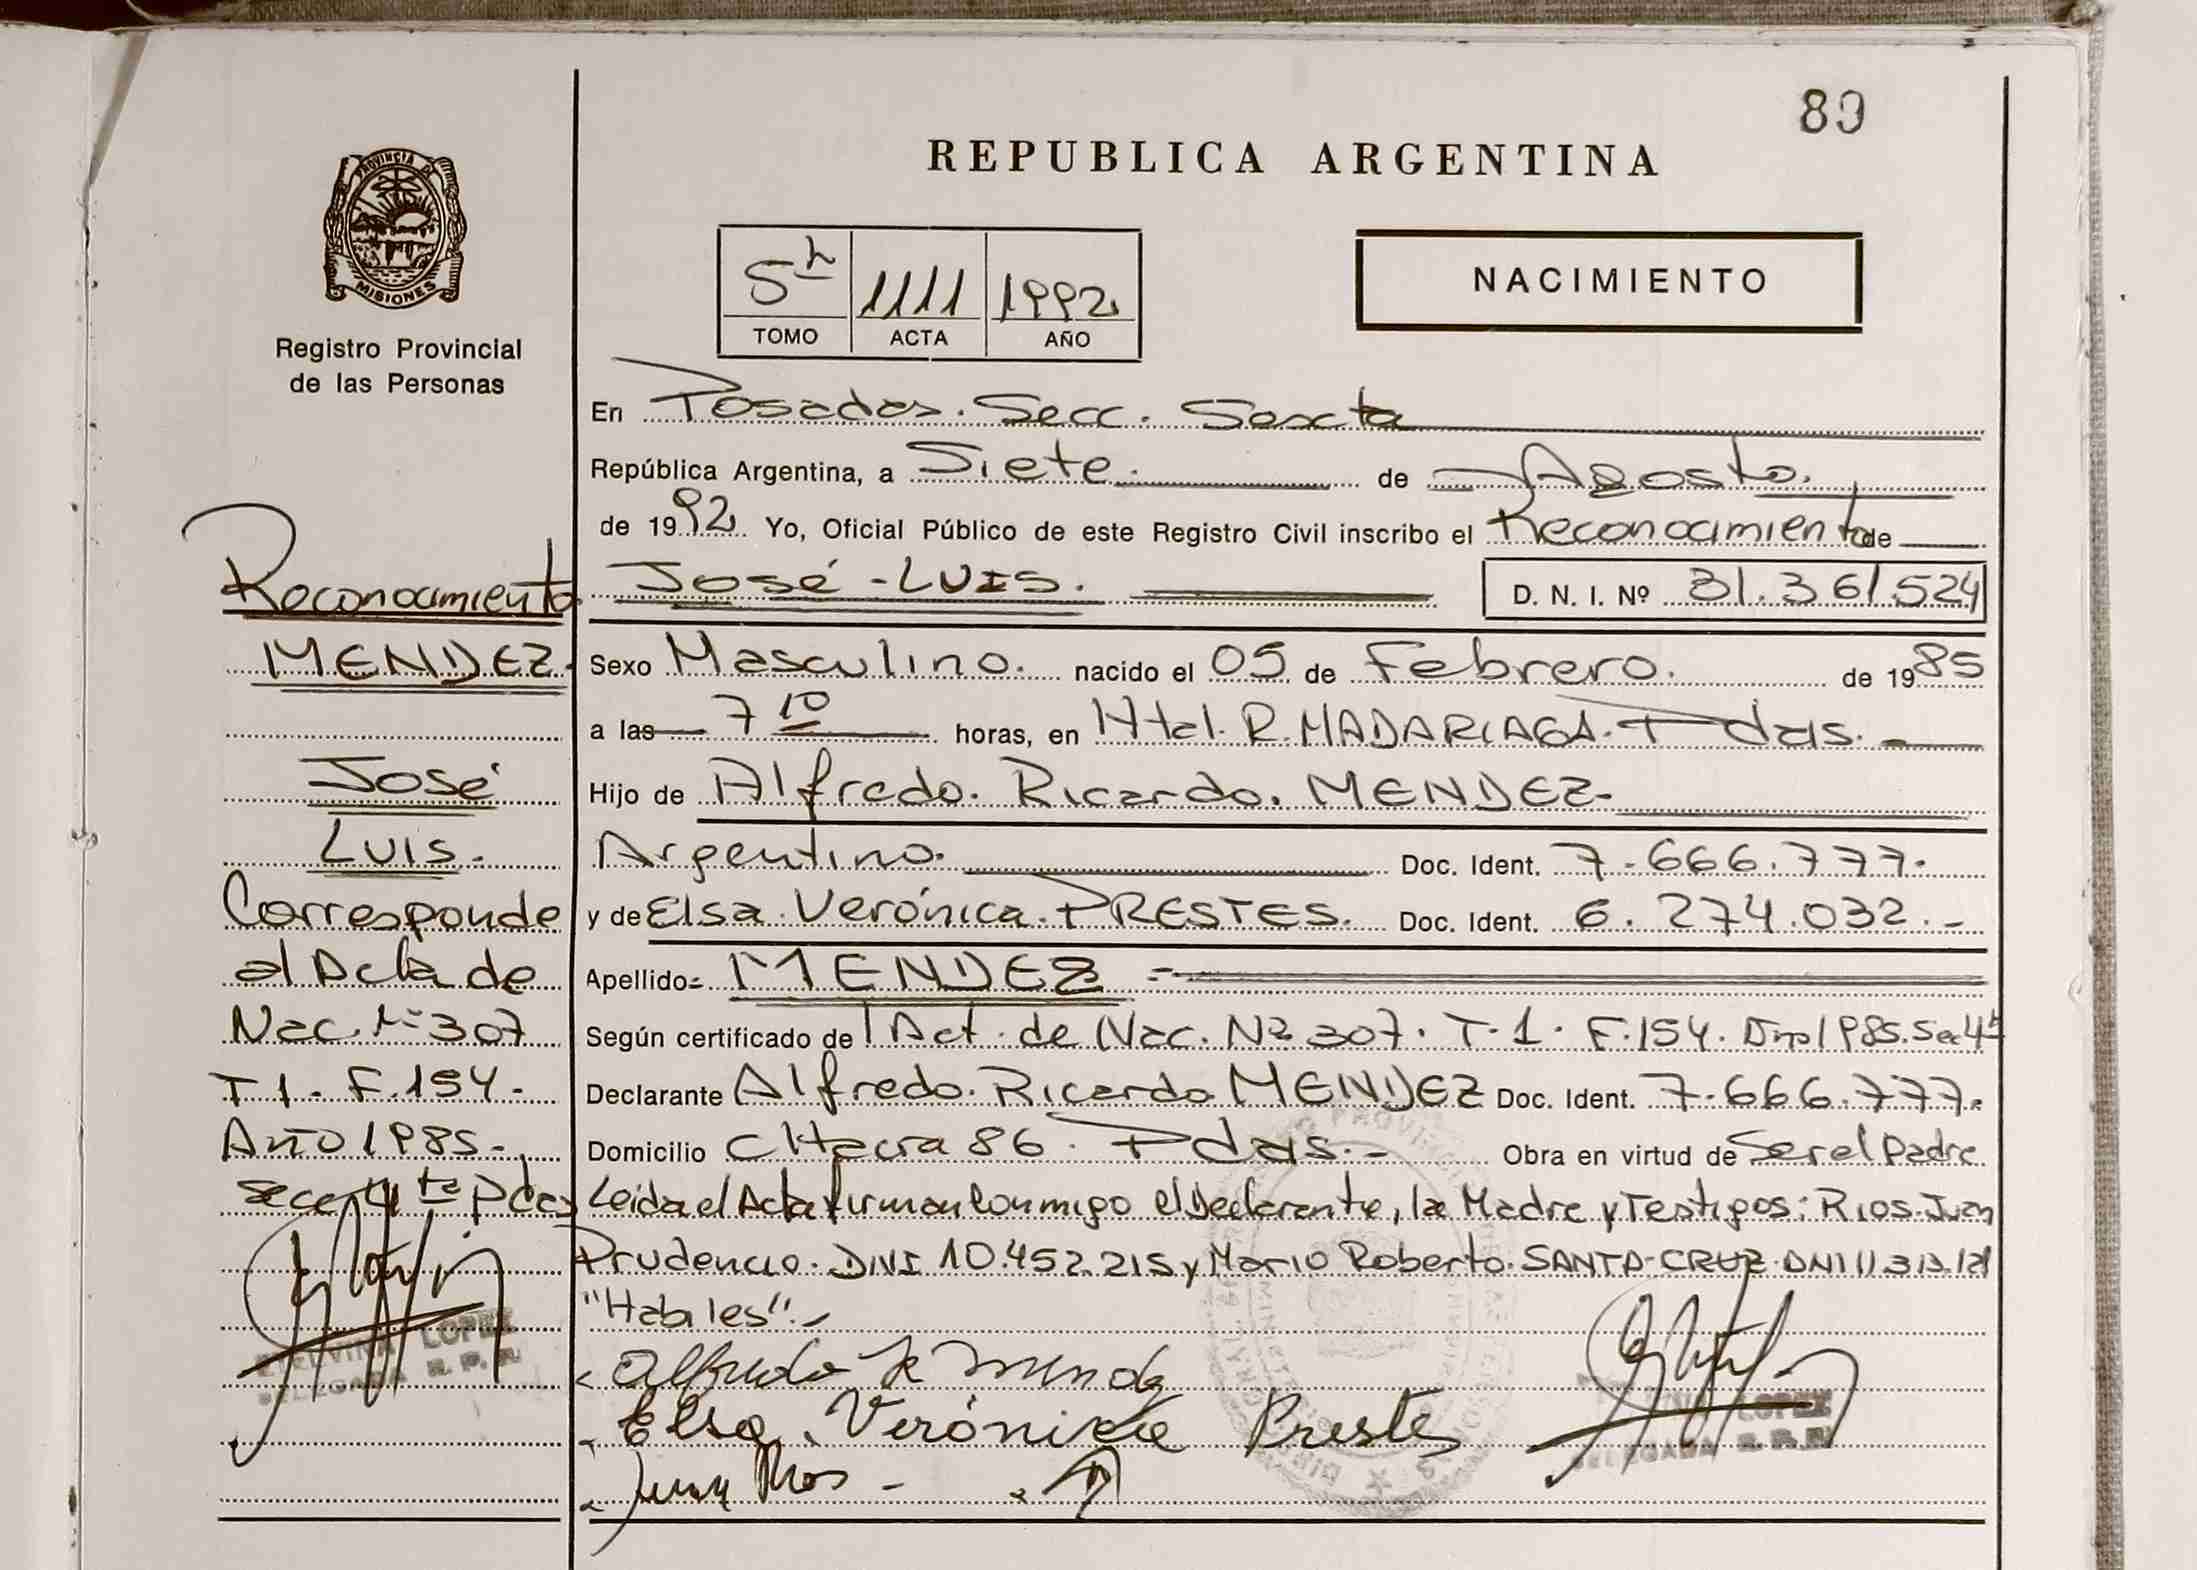 89
REPUBLICA ARGENTINA
PROVINCIA D
MISIONES
Registro Provincial
de las Personas
5h 1111 1992
TOMO ACTA AÑO
NACIMIENTO
En Posadas. Secc. Sexta
República Argentina, a Siete. de Agosto.
de 1992 Yo, Oficial Público de este Registro Civil inscribo el Reconocimiento de
José - LUIS. D. N. I. Nº 31.361.524
Sexo Masculino. nacido el 05 de Febrero. de 1985
a las 7 10 horas, en Htal. R. MADARIAGA. Pdas.
Hijo de Alfredo. Ricardo. MENDEZ.
Argentino. Doc. Ident. 7.666.777.
y de Elsa. Verónica. PRESTES. Doc. Ident. 6.274.032.-
Apellido MENDEZ
Según certificado de Act. de Nac. Nº 307. T.1. F.154. 1985. Sec 4ª
Declarante Alfredo. Ricardo MENDEZ Doc. Ident. 7.666.777.
Domicilio CHacra 86. Pdas.- Obra en virtud de Ser el Padre
Leida el Acta firman Conmigo el Declarante, la Madre y Testigos: Rios. Juan
Prudencio. DNI 10.452.215 y Mario Roberto. SANTA-CRUZ. DNI
"Habiles".-
Alfredo R Mendez
Elsa. Verónica Prestes
Juan Rios -
LOPEZ
DELEGADA R.P.P.
Reconocimiento
MENDEZ.
José
LUIS.
Corresponde
al Acta de
Nac. Nº 307
T 1. F. 154.-
Año 1985.-
Secc 4ta Pdas
LOPEZ
DELEGADA R.P.P.